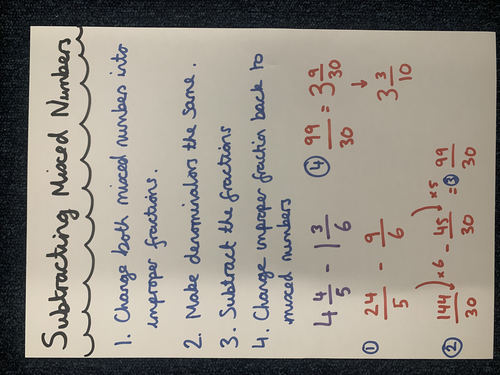 Subtracting Mixed Numbers
1. Change both mixed numbers into
improper fractions.
2. Make denominators the same.
3. Subtract the fractions
4. Change improper fraction back to
mixed numbers
4 4/5 - 1 3/6
① 24/5 - 9/6
② 144/30 ×6 - 45/30 ×5 = ③ 99/30
④ 99/30 = 3 9/30
↓
3 3/10